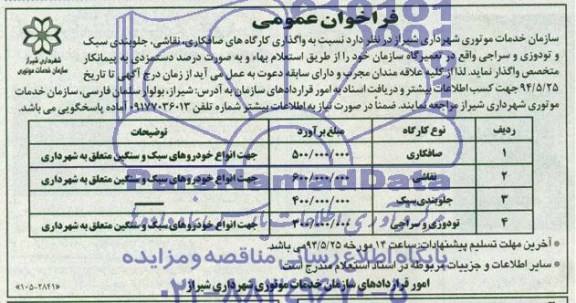 فراخوان عمومی
شهرداری شیراز
سازمان خدمات موتوری
سازمان خدمات موتوری شهرداری شیراز در نظر دارد نسبت به واگذاری کارگاه های صافکاری، نقاشی، جلوبندی سبک
و تودوزی و سراجی واقع در تعمیرگاه سازمان خود را از طریق استعلام بهاء و به صورت درصد دستمزدی به پیمانکار
متخصص واگذار نماید. لذا از کلیه علاقه مندان مجرب و دارای سابقه دعوت به عمل می آید از زمان درج آگهی تا تاریخ
۹۴/۵/۲۵ جهت کسب اطلاعات بیشتر و دریافت اسناد به امور قراردادهای سازمان به آدرس: شیراز، بولوار سلمان فارسی، سازمان خدمات
موتوری شهرداری شیراز مراجعه نمایند. ضمناً در صورت نیاز به اطلاعات بیشتر شماره تلفن ۰۹۱۷۷۰۳۶۰۱۳ آماده پاسخگویی می باشد.
ردیف نوع کارگاه مبلغ برآورد توضیحات
۱ صافکاری ۵۰۰/۰۰۰/۰۰۰ جهت انواع خودروهای سبک و سنگین متعلق به شهرداری
۲ نقاشی ۶۰۰/۰۰۰/۰۰۰ جهت انواع خودروهای سبک و سنگین متعلق به شهرداری
۳ جلوبندی سبک ۴۰۰/۰۰۰/۰۰۰ ـــــ
۴ تودوزی و سراجی ۳۰۰/۰۰۰/۰۰۰ جهت انواع خودروهای سبک و سنگین متعلق به شهرداری
ParsNamadData
● آخرین مهلت تسلیم پیشنهادات ساعت ۱۴ مورخه ۹۴/۵/۲۵ می باشد.
پایگاه اطلاع رسانی مناقصه و مزایده
● سایر اطلاعات و جزییات مربوطه در اسناد استعلام مندرج است.
امور قراردادهای سازمان خدمات موتوری شهرداری شیراز
«۱۰۵۰۲۸۴۱»